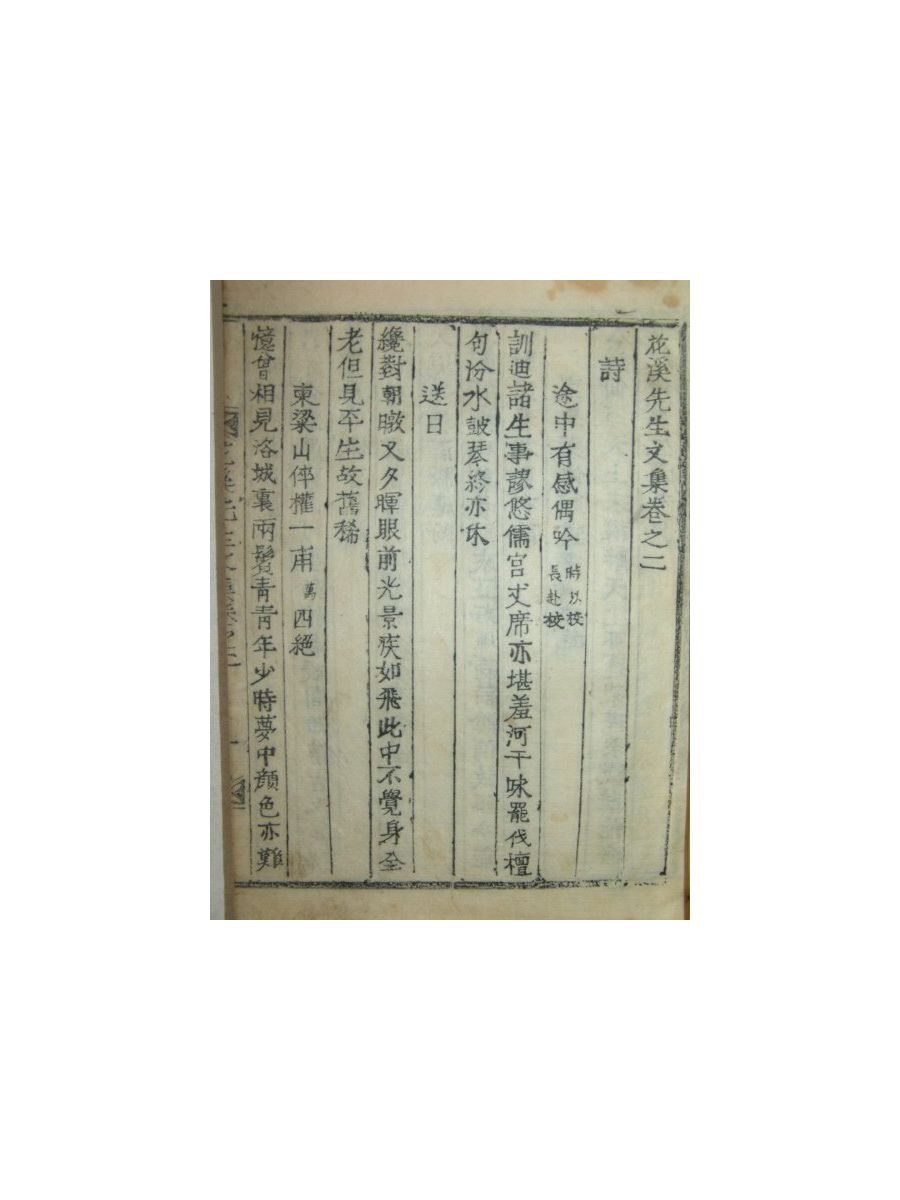 花溪先生文集卷之二
詩
途中有感偶吟 時以校長赴校
訓迪諸生事謬悠儒宮丈席亦堪羞河干咏罷伐檀
句汾水皷琴終亦休
送日
纔對朝暾又夕暉眼前光景疾如飛此中不覺身全
老但見平生故舊稀
東梁山倅權一甫 萬 四絕
憶曾相見洛城裏兩鬢青青年少時夢中顏色亦難